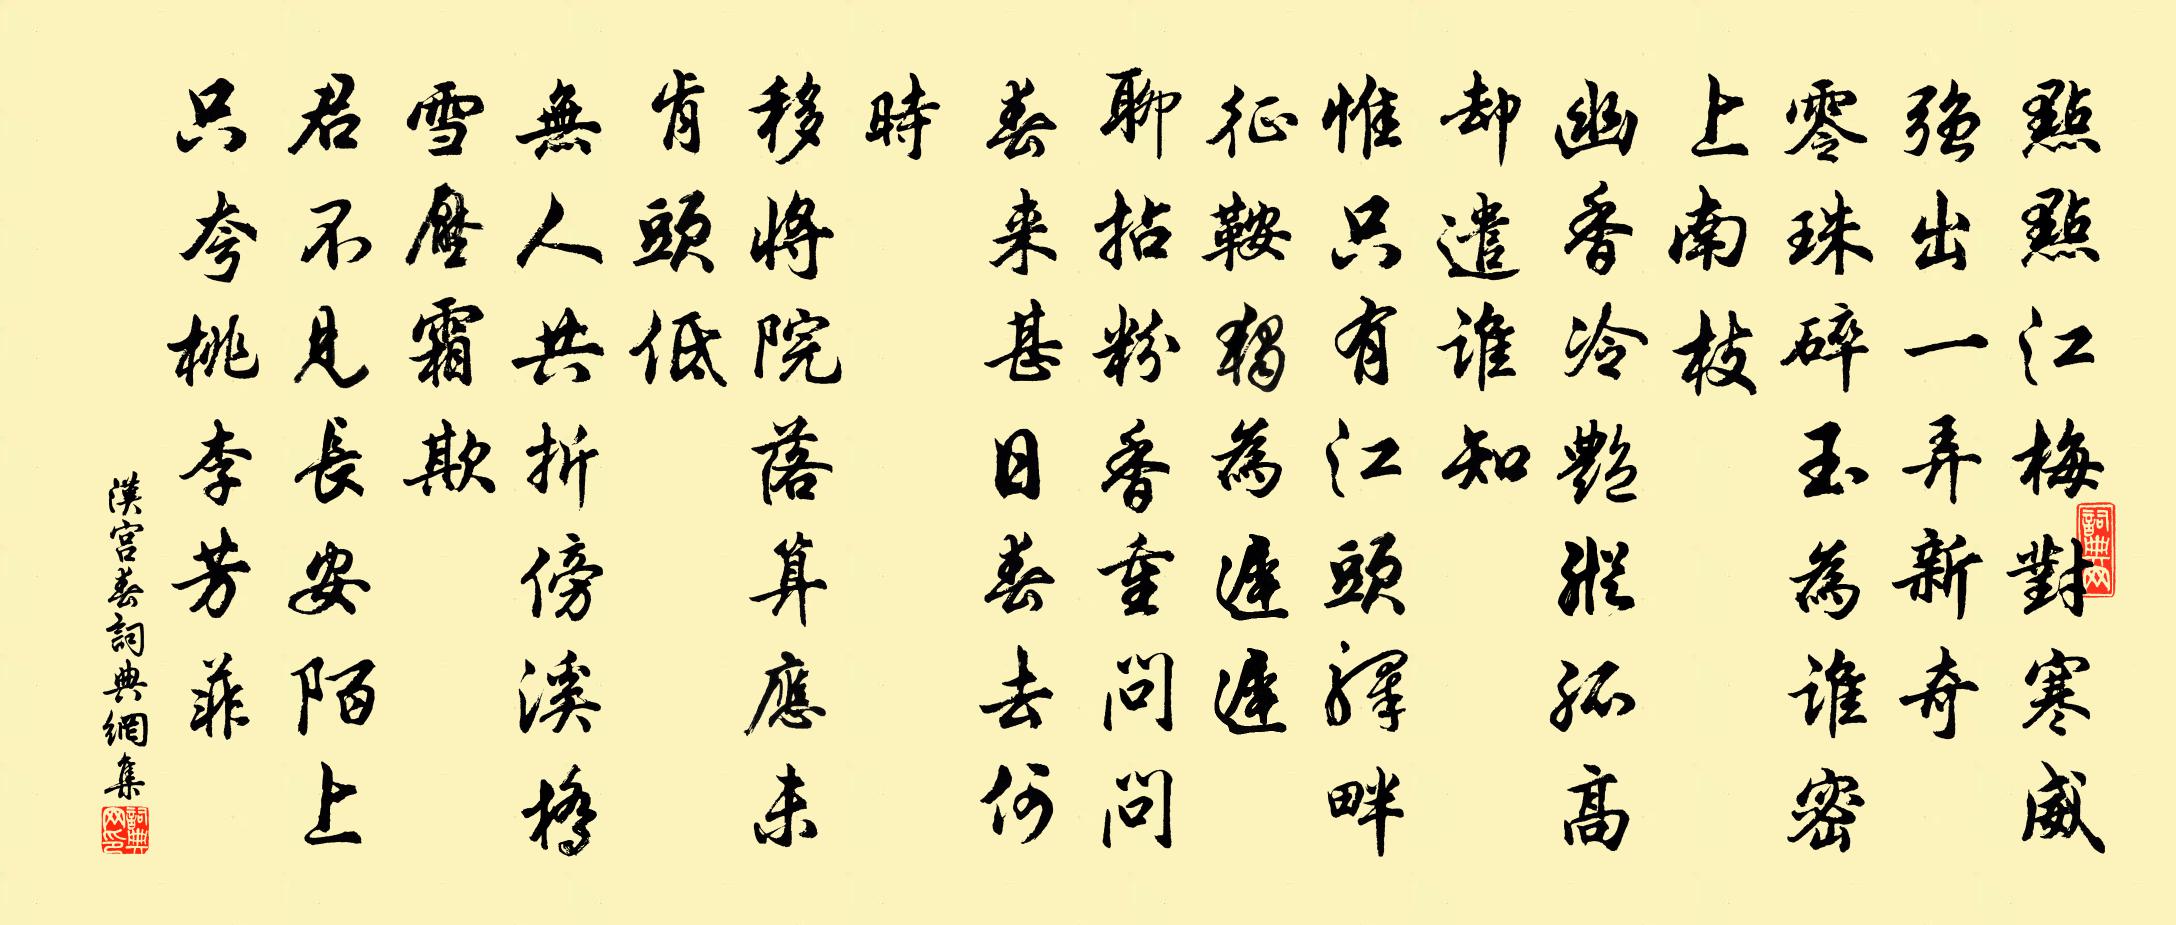 點點江梅對寒威
強出一弄新奇
零珠碎玉為誰密
上南枝
幽香冷艷縱孤高
却遣誰知
惟只有江頭驛畔
征鞍獨為遲遲
聊拈粉香重問問
春来甚日春去何
時
移將院落算應未
肯頭低
無人共折傍溪橋
雪壓霜欺
君不見長安陌上
只夸桃李芳菲
漢宮春詞典網集
詞典网
詞典网印